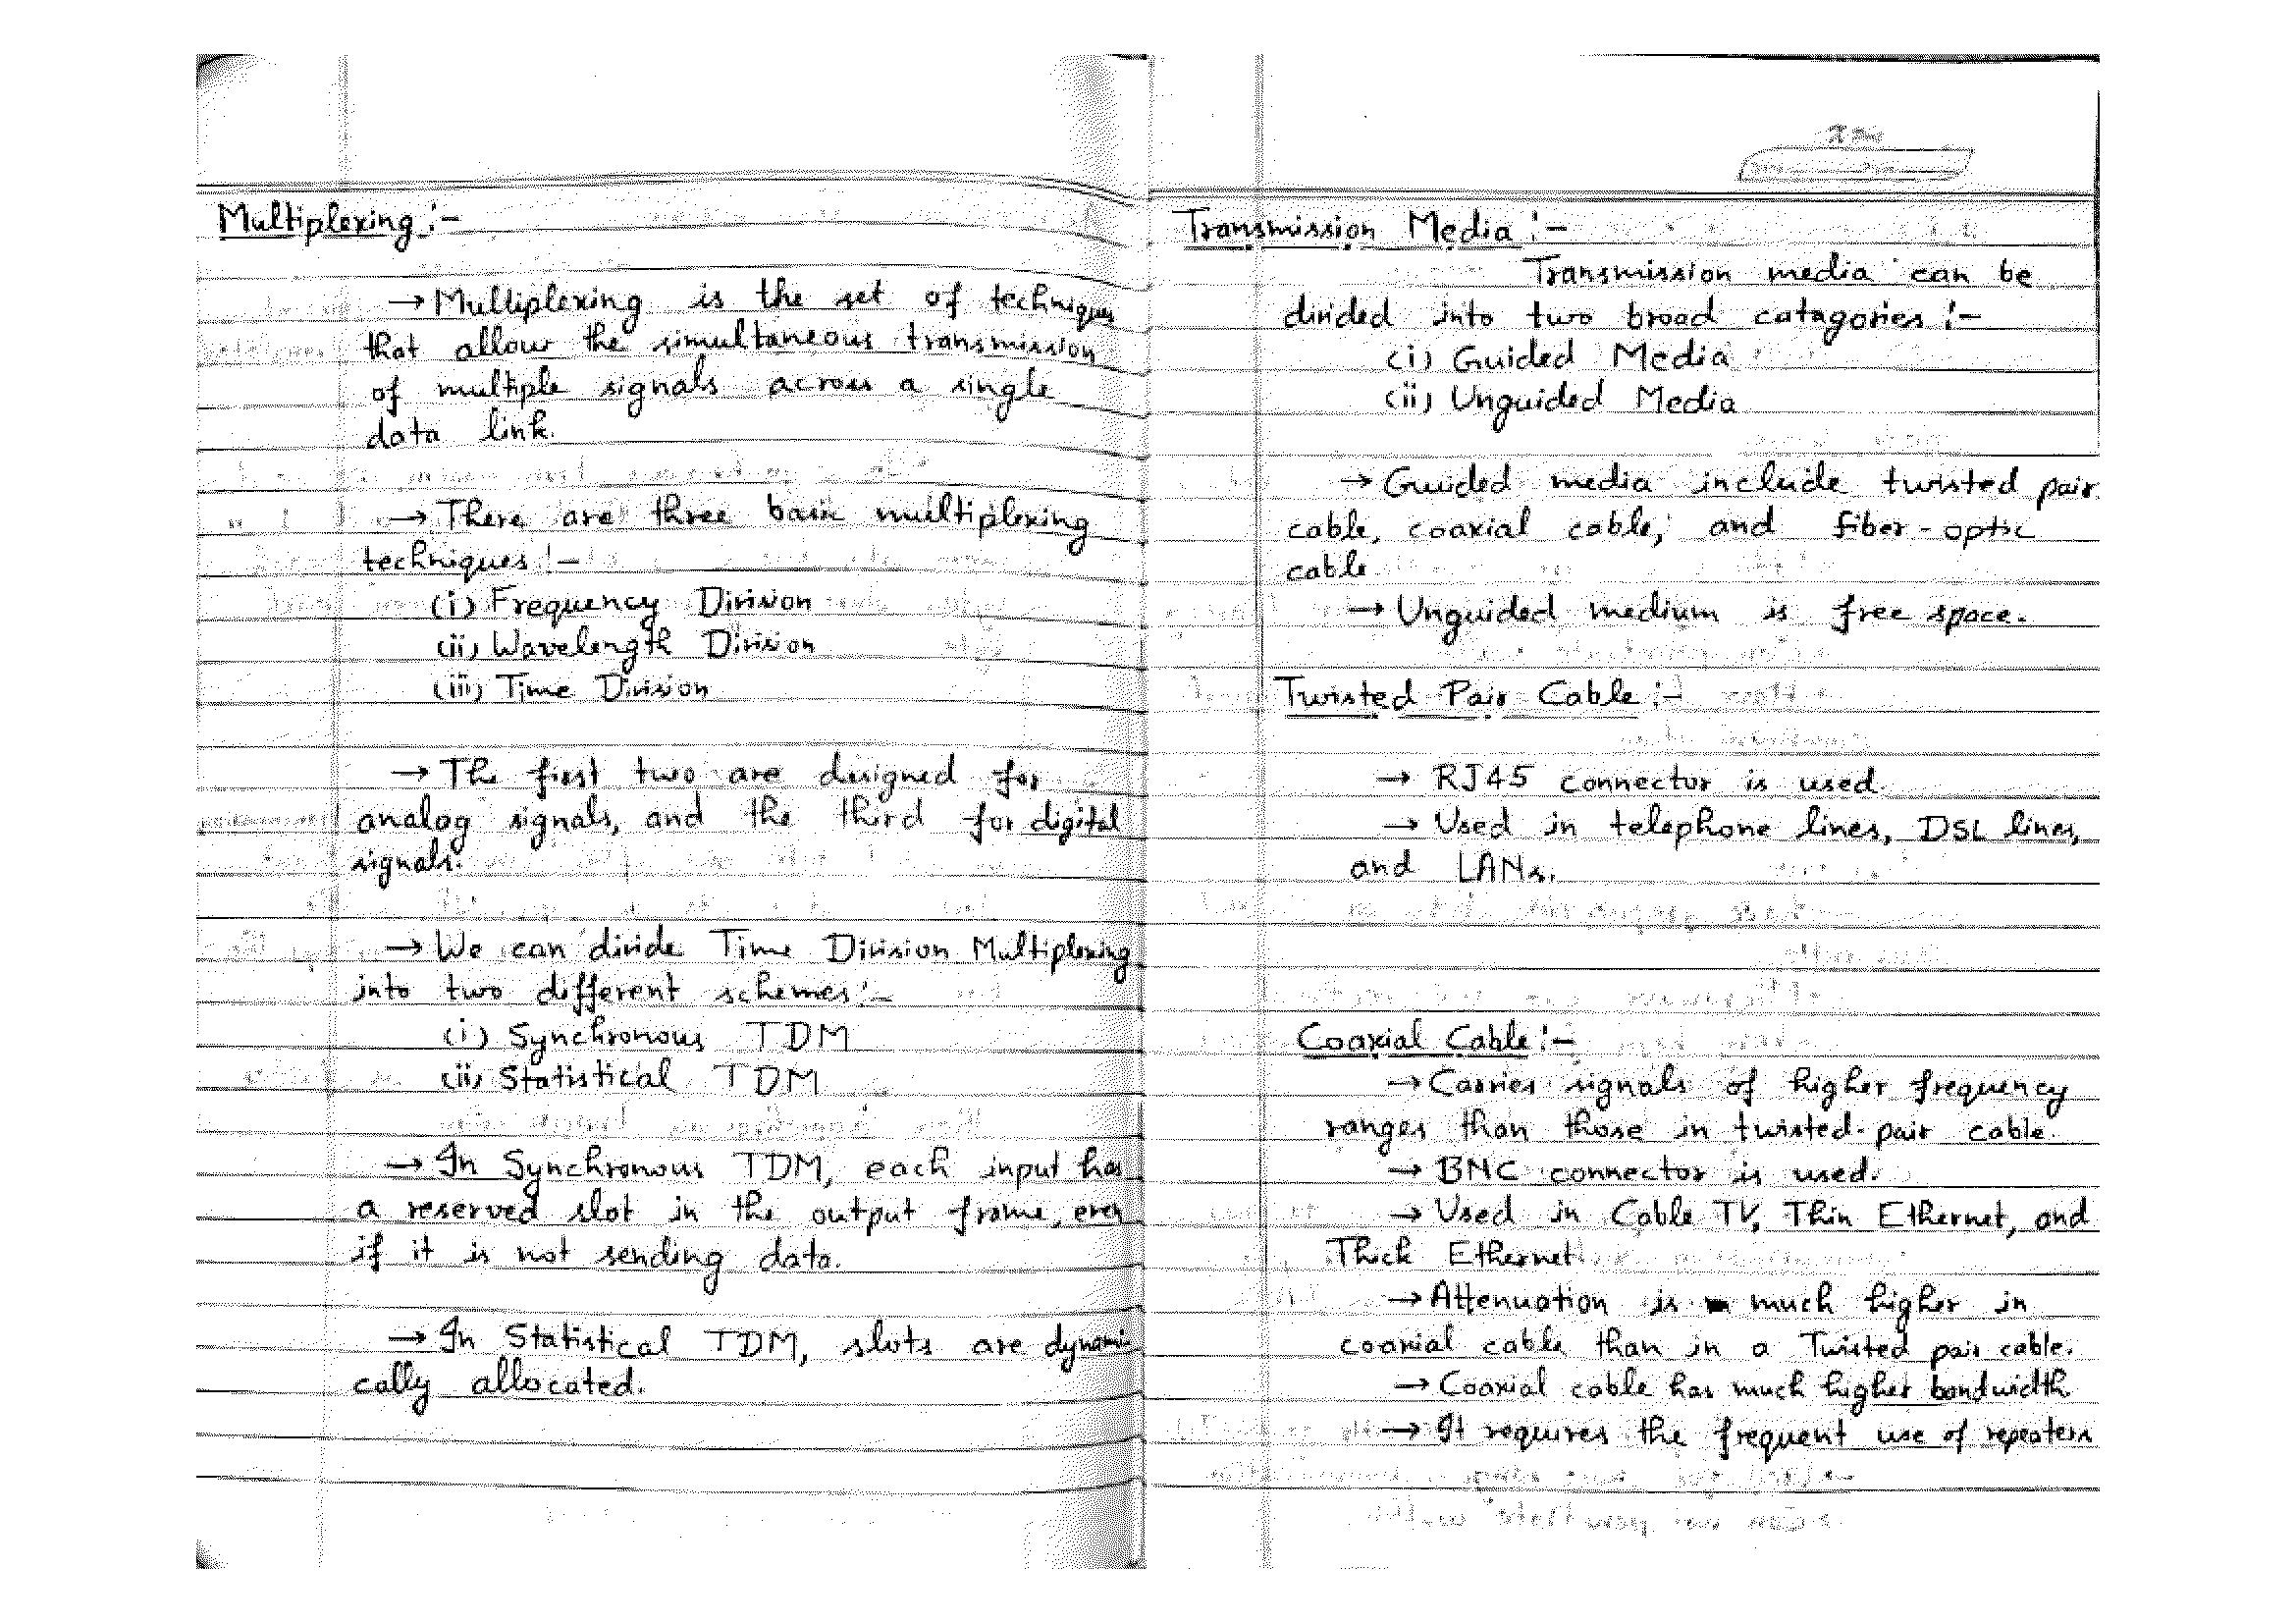 Multiplexing :-
→ Multiplexing is the set of techniques
that allow the simultaneous transmission
of multiple signals across a single
data link.
→ There are three basic multiplexing
techniques :-
(i) Frequency Division
(ii) Wavelength Division
(iii) Time Division
→ The first two are designed for
analog signals, and the third for digital
signals.
→ We can divide Time Division Multiplexing
into two different schemes :-
(i) Synchronous TDM
(ii) Statistical TDM
→ In Synchronous TDM, each input has
a reserved slot in the output frame, even
if it is not sending data.
→ In Statistical TDM, slots are dynami-
cally allocated.
Transmission Media :-
Transmission media can be
divided into two broad catagories :-
(i) Guided Media
(ii) Unguided Media
→ Guided media include twisted pair
cable, coaxial cable, and fiber-optic
cable
→ Unguided medium is free space.
Twisted Pair Cable :-
→ RJ45 connector is used.
→ Used in telephone lines, DSL lines,
and LANs.
Coaxial Cable :-
→ Carries signals of higher frequency
ranges than those in twisted-pair cable.
→ BNC connector is used.
→ Used in Cable TV, Thin Ethernet, and
Thick Ethernet
→ Attenuation is much higher in
coaxial cable than in a Twisted pair cable.
→ Coaxial cable has much higher bandwidth
→ It requires the frequent use of repeaters